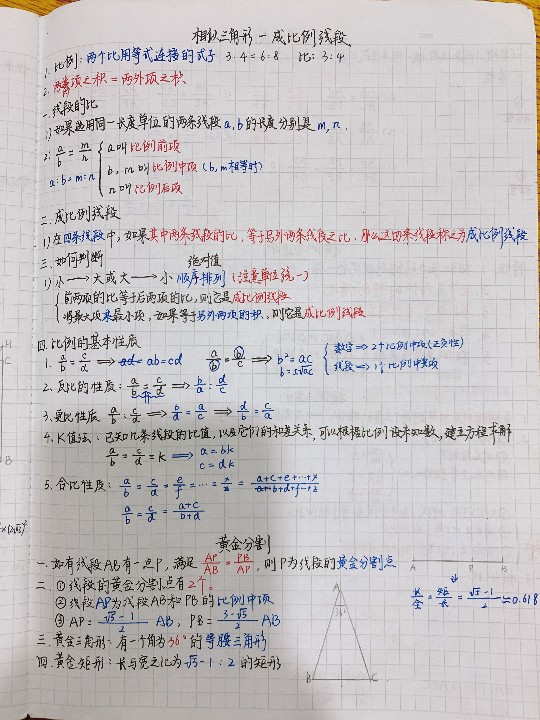 相似三角形-成比例线段
1. 比例：两个比用等式连接的式子 3:4=6:8 比：3:4
2. 两内项之积=两外项之积
一.线段的比
1)如果选用同一长度单位的两条线段a,b的长度分别是m,n.
2: a/b = m/n { a叫比例前项
a:b=m:n b,m叫比例中项(b,m相等时)
n叫比例后项
二.成比例线段
1)在四条线段中,如果其中两条线段的比,等于另外两条线段之比,那么这四条线段称之为成比例线段
三.如何判断 绝对值
1)小→大或大→小 顺序排列(注意单位统一)
{ 前两项的比等于后两项的比,则它是成比例线段
将最大项乘最小项,如果等于另外两项的积,则它是成比例线段
四.比例的基本性质
1. a/b = c/d ⇒ ab=cd a/b = b/c ⇒ b²=ac { 数字⇒2个比例中项(正负性)
b=±√ac 线段⇒1个比例中项
2. 反比的性质: a/b = c/d ⇒ b/a = d/c
3.更比性质 a/b = c/d ⇒ b/d = a/c ⇒ d/b = c/a
4.K值法:已知几条线段的比值,以及它们的和差关系,可以根据比例设未知数,建立方程求解
a/b = c/d = k ⇒ a=bk
c=dk
5.合比性质: a/b = c/d = e/f = … = x/z = a+c+e+…+x/a+b+d+f…+z
a/b = c/d = a+c/b+d
黄金分割
一.如有线段AB有一点P,满足 AP/AB = PB/AP,则P为线段的黄金分割点
A P B
二.①线段的黄金分割点有2个。
长/全 = 短/长 = √5-1/2 ≈0.618
②线段AP为线段AB和PB的比例中项
③AP= √5-1/2 AB, PB= 3-√5/2 AB
三.黄金三角形:有一个角为36°的等腰三角形
四.黄金矩形:长与宽之比为√5-1:2的矩形
A
36°
B C